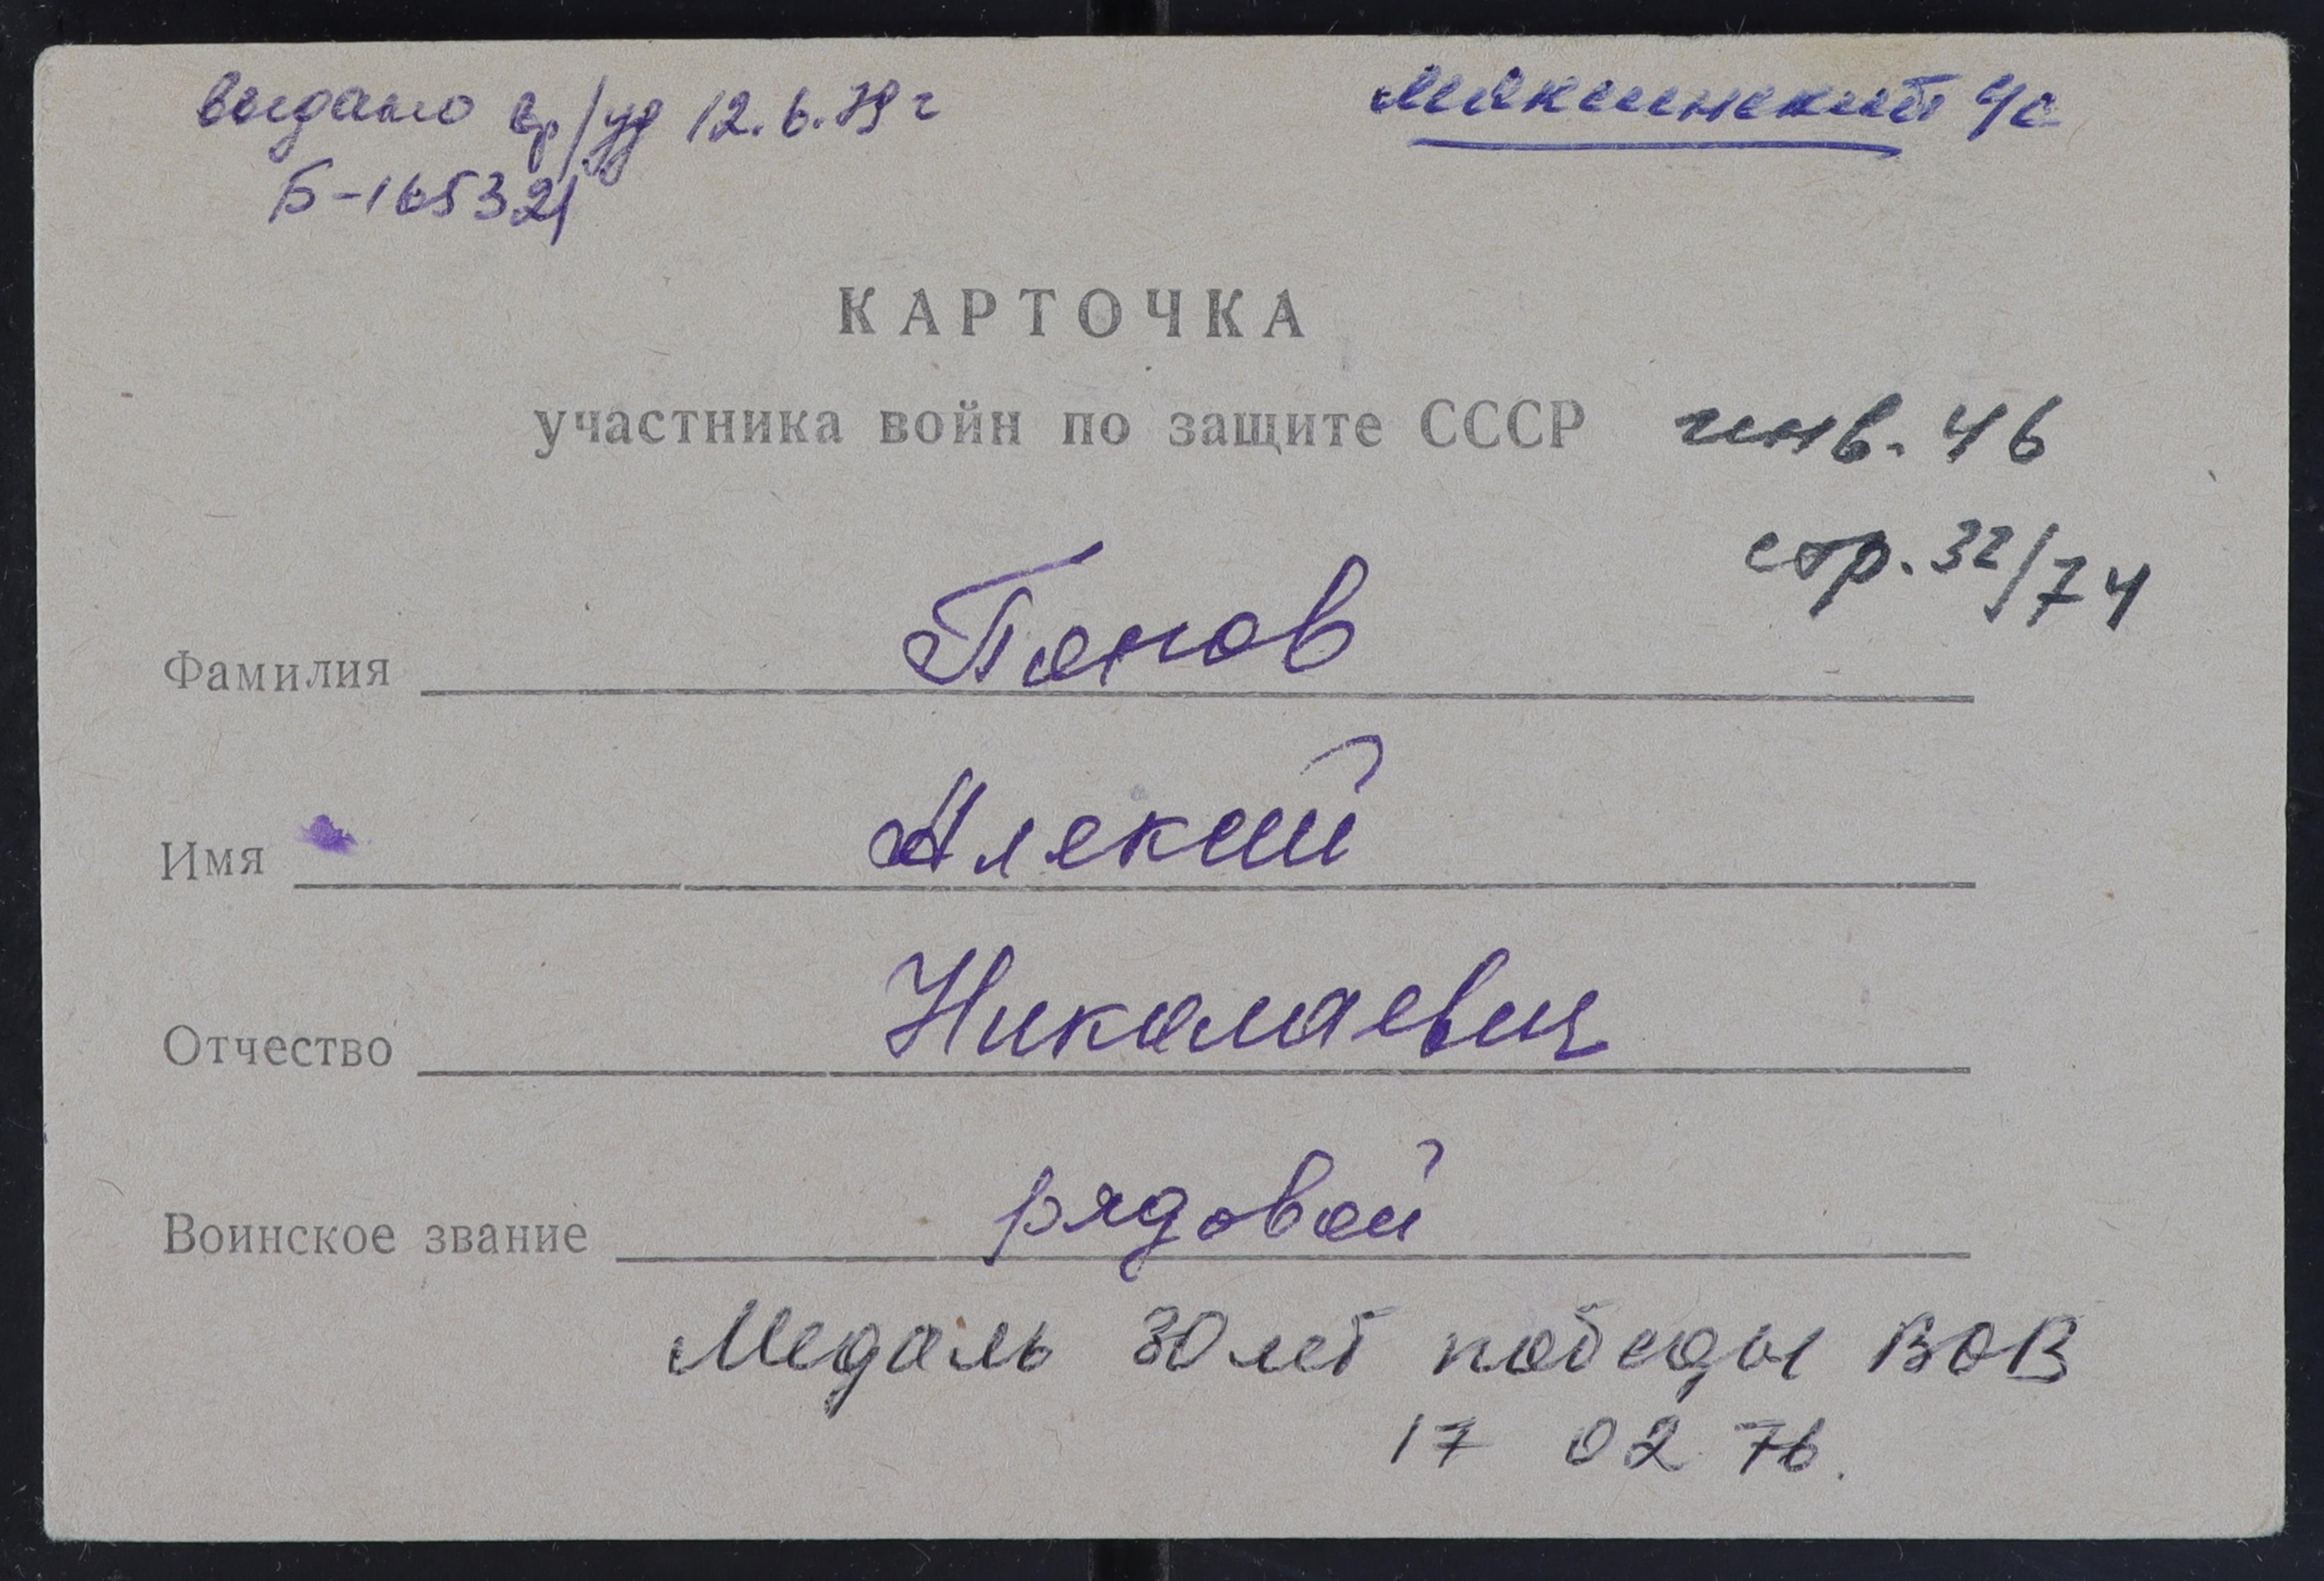 выдано вр/уд 12.6.79 г
Б-165321
Макинский ЧС
КАРТОЧКА
участника войн по защите СССР инв. 46
стр. 32/74
Фамилия Попов
Имя Алексей
Отчество Николаевич
Воинское звание рядовой
Медаль 30 лет победы ВОВ
17 02 76.